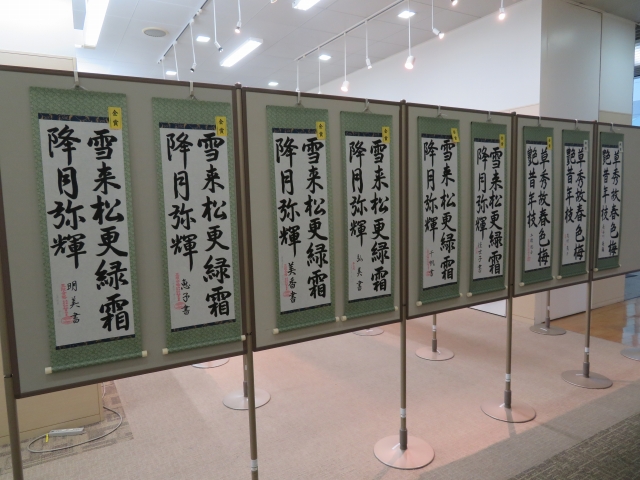 金賞
雪来松更緑霜
降月弥輝
明美書
金賞
雪来松更緑霜
降月弥輝
恵子書
金賞
雪来松更緑霜
降月弥輝
美香書
金賞
雪来松更緑霜
降月弥輝
弘美書
雪来松更緑霜
降月弥輝
雪来松更緑霜
降月弥輝
草秀故春色梅
艶昔年
草秀故春色梅
艶昔年
草秀故春色梅
艶昔年